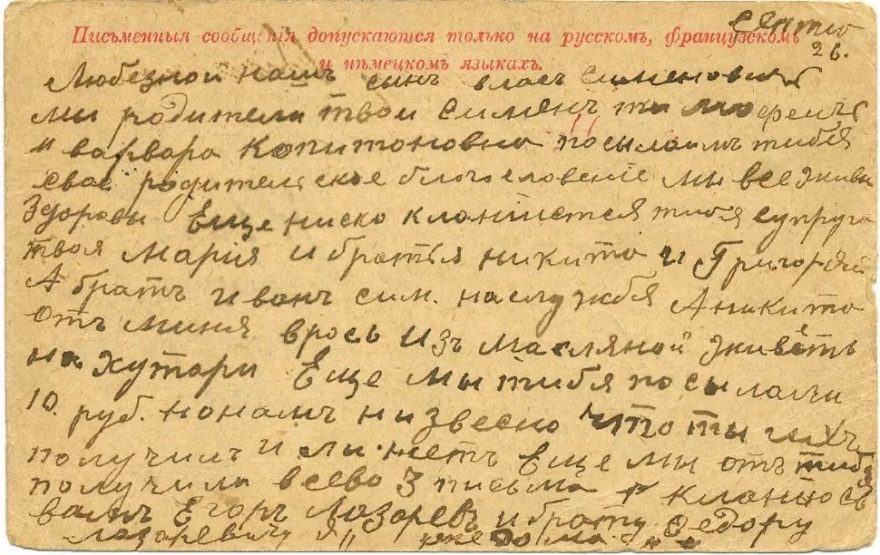 Сентяб
Письменныя сообщенія допускаются только на русскомъ, французскомъ
26.
и нѣмецкомъ языкахъ.
Любезной нашъ сынъ власъ Сименовичъ
мы родители твои Сименъ
и варвара Копитоновна посылаимъ тибѣ
свае родительское благословение мы все живы
Здоровы Еще ниско кланиется тибя супруга
твоя Мария и братья никита и Григоряй
А братъ иванъ сим. на службя А никита
отъ миня врось изъ масляной живѣть
на хутари Еще мы тибя посылали
10. руб. но намъ низвесно что ты ихъ
получилъ и ли нетъ Еще мы отъ тибя
получили всево 3 письма кланиюсь
вамъ Егоръ Лазаревъ и брату Федору
Лазаревичу я уже дома